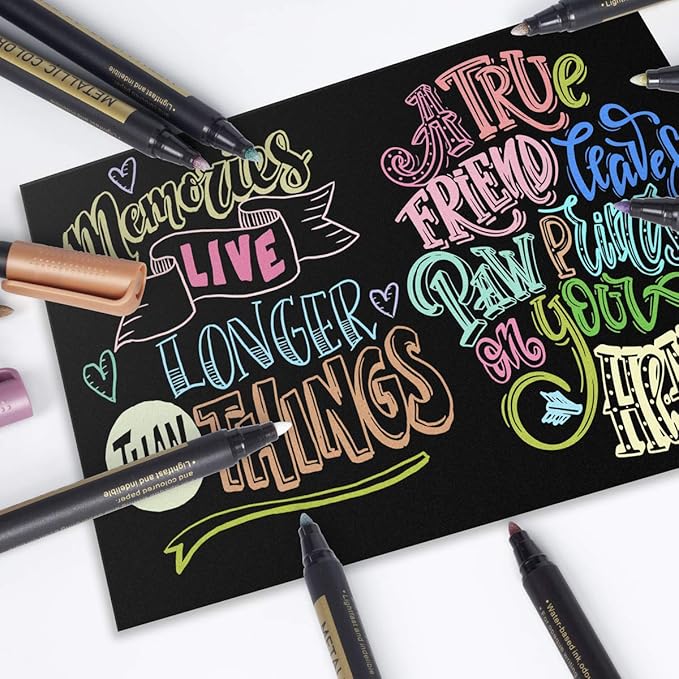 METALLIC COLOR
Lightfast and indelible
METALLIC COLOR
Lightfast and indelible
Memories
LIVE
LONGER
THAN
THINGS
A TRUe
FRIEND leaves
PAW PRiNTS
on your
HE
and coloured paper.
Lightfast and indelible
Lightfast and indelible
METAL
Water-based ink, odou